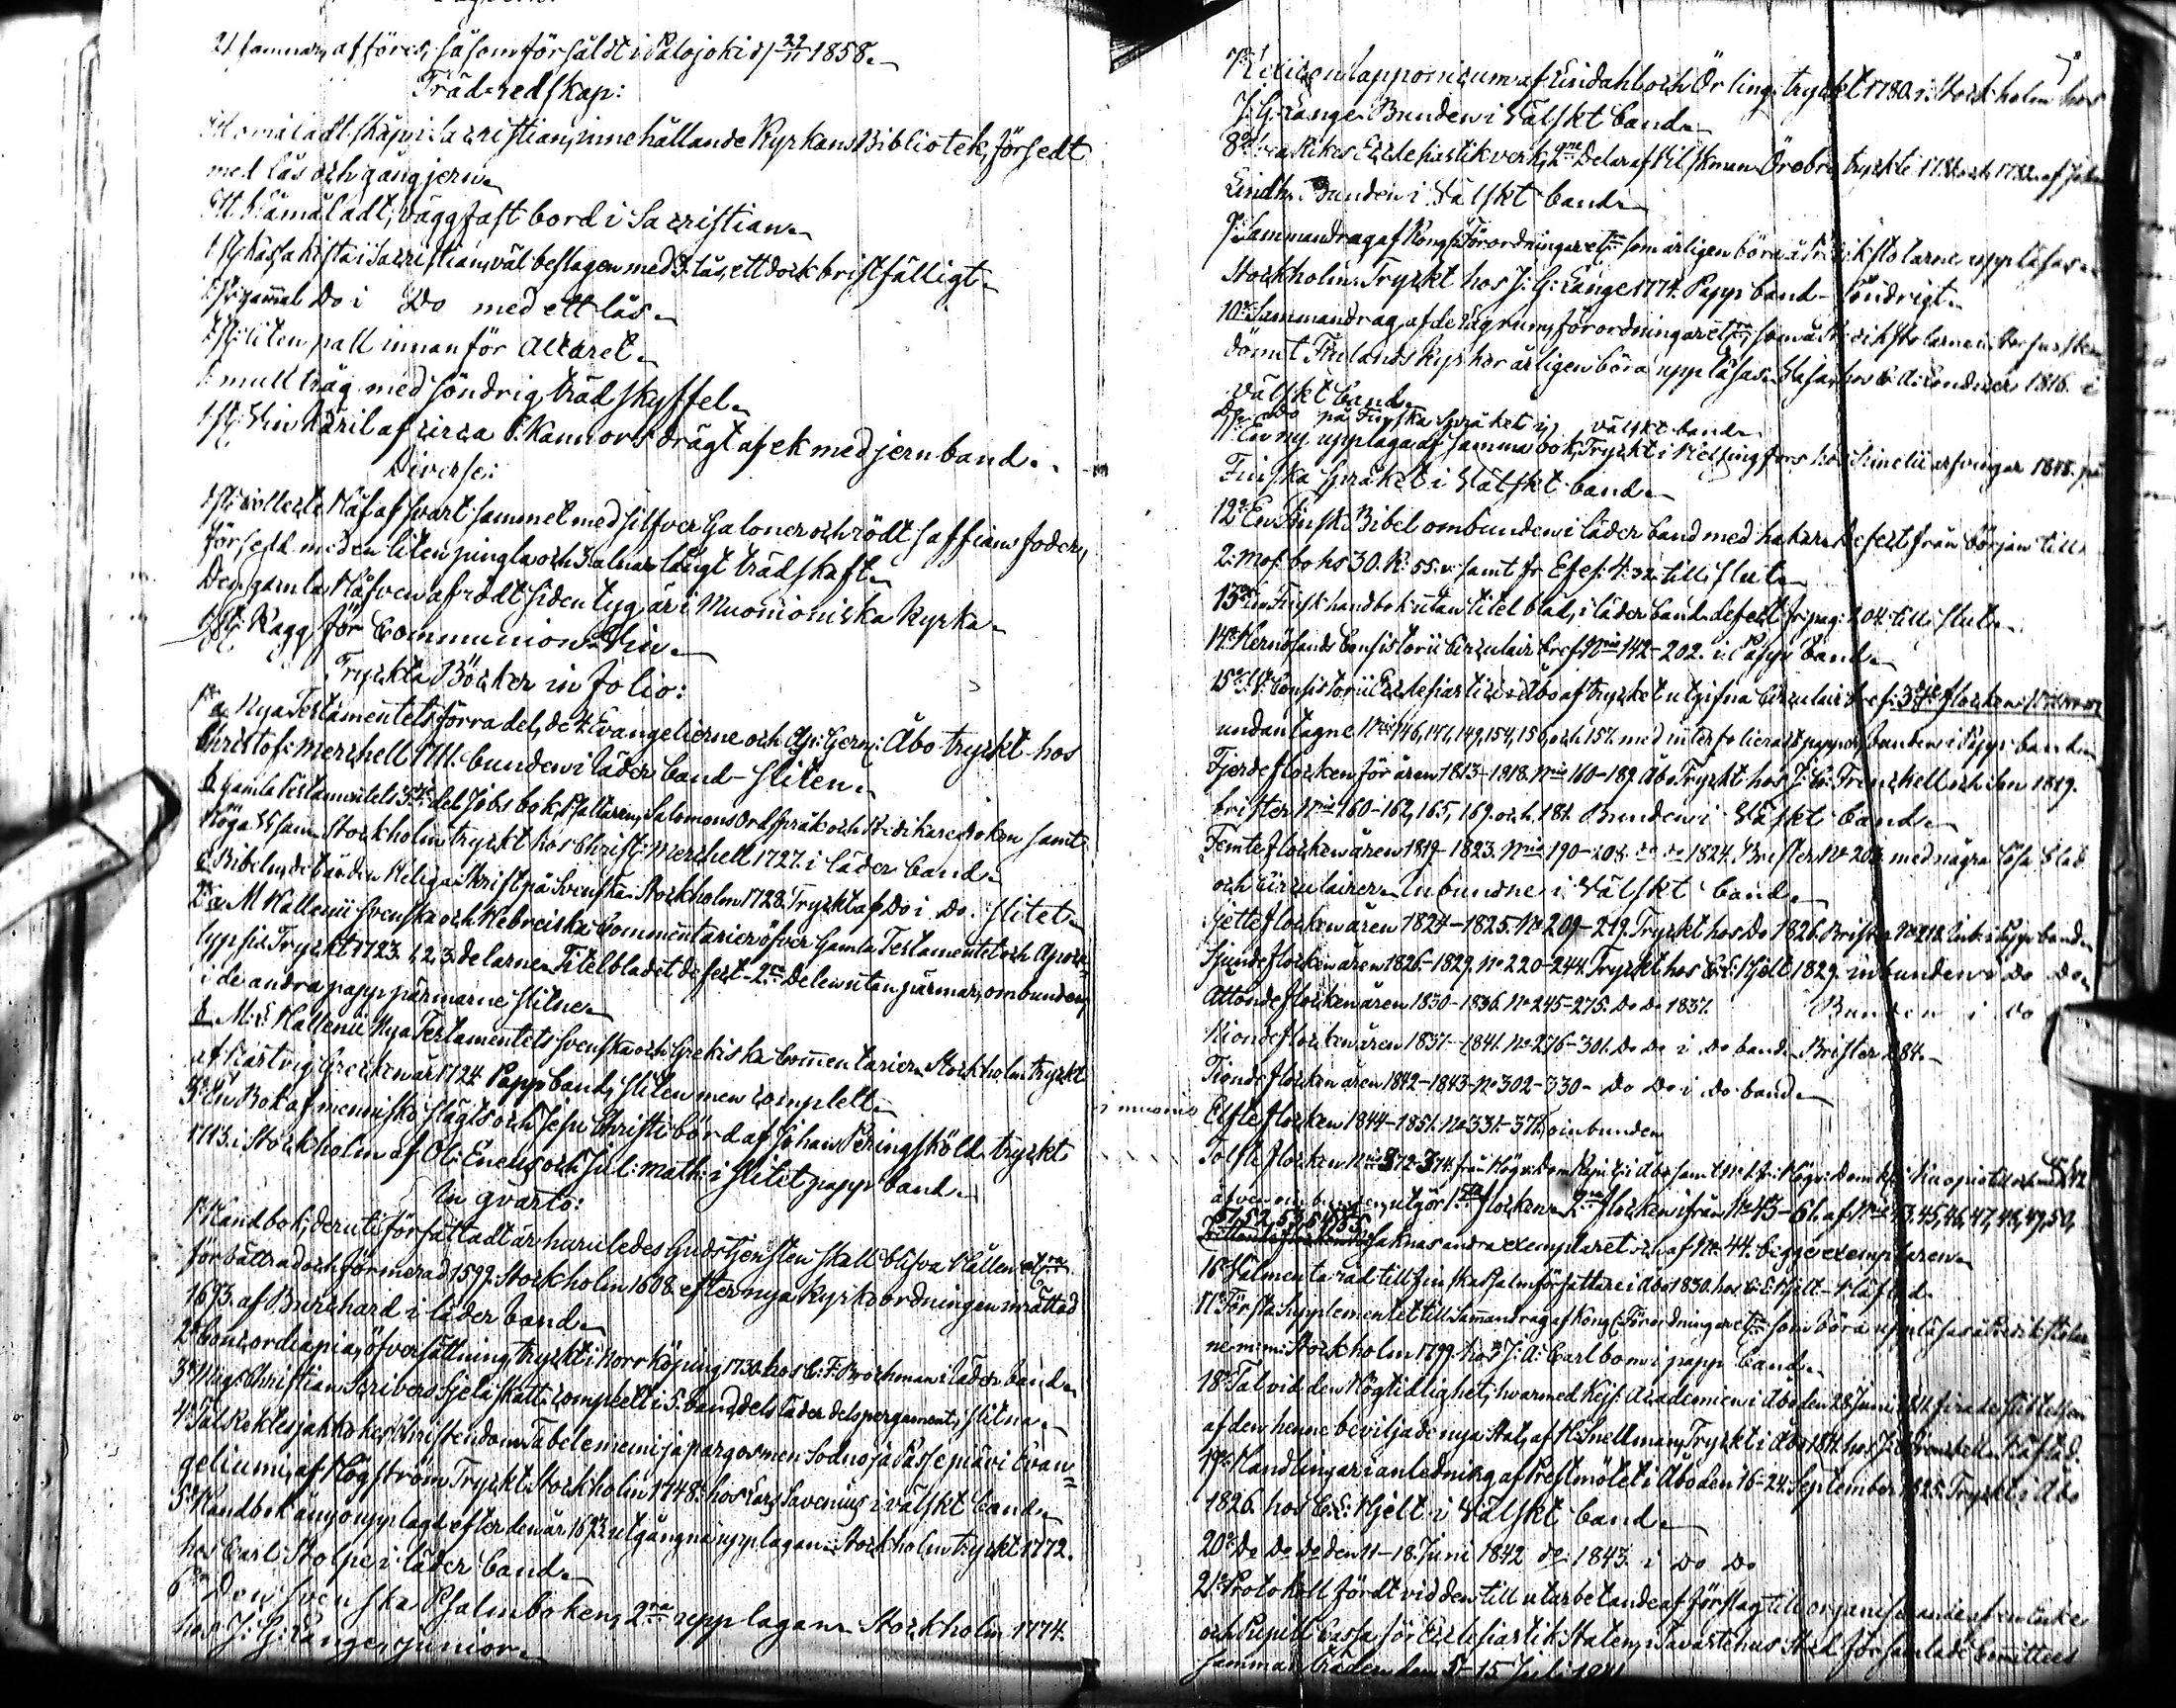 21 famnar, afföres, såsom försåldt i Palojoki d/ 22/11 1858.
Träd-redskap:
Ett omåladt skåp i Sacristian, innehållande Kyrkans Bibliotek, försedt
med lås och gångjern.
Ett blåmåladt, väggfast bord i Sacristian.
1 st: Kassakista i Sacristian, väl beslagen med 3 lås, ett dock bristfälligt.
1 st: gammal Do i Do med ett lås.
1 st: liten pall innanför Altaret.
1 mulltråg med söndrig trädskyffel.
1 st: Vin Käril af circa 6 Kannors drägt af ek med jernband.
Diverse:
1 st: collecte Håf af svart sammet med silfver Galoner och rödt saffians foder,
försedd med en liten pingla och 3 alnar långt trädskaft.
Den gamla Håfven af rödt sidentyg, är i Muonioniska Kyrka.
1 st: Kagg för Communions Vin.
Tryckta Böcker in folio:
1o a Nya Testamentets förra del, de 4 Evangelierne och Ap: Gern: Åbo tryckt hos
Christof: Merchell 1711. bunden i läder band - sliten.
b Gamla Testamentets 3dje del, Jobs bok, Psaltaren, Salomons Ordspråk och Predikareboken samt
Höga Visan. Stockholm tryckt hos Christ: Merchell 1727. i läder band.
c Bibeln, det är den Heliga Skrift på Svenska. Stockholm 1728. Tryckt af Do i Do. slitet.
2o a M Hallenii Svenska och Hebreiska Commentarier öfver Gamla Testamentet och Apoca-
lypsis. Tryckt 1723. 1, 2, 3 delarne. Titelbladet defect - 2dra Delen utan pärmar, ombunden,
i de andra papp pärmarne slitne.
b M: L: Hallenii Nya Testamentets Svenska och Grekiska Commentarier. Stockholm tryckt
af Hartvig Gercken år 1724. Pappband, sliten men complett.
3o En Bok af menniskoslägts och Jesu Christi börd af Johan Peringsköld, tryckt
1713. i Stockholm af Ol: Eneus och Jul: Math: i slitet papp band.
In qvarto:
1o Handbok, deruti författadt är huruledes Gudstjensten skall blifva Hållen etc.
förbättrad och förmerad 1599. Stockholm 1608. efter nya Kyrkoordningen inrättad
1693. af Burchard i läder band.
2o Concordia pia, öfversättning, tryckt i Norrköping 1730. hos C: F: Brochman i läder band.
3o Mag: Christian Scrivers Själaskatt. Complett i 5. band, dels läder dels pergament, slitna.
4o Tålkokles jakkokes Christendom Tabelemem ja pargosmen Sodno ja Passepiävi Evan-
geliumi, af Högström. Tryckt Stockholm 1748. hos Lars Salvius i välskt band.
5o Handbok ånyo upplagd efter den år 1693 utgångna upplagan. Stockholm tryckt 1772.
hos Carl Stolpe i läder band.
6o Den Svenska Psalmboken, 2dra upplagan. Stockholm 1774.
hos J: G: Lange junior.
7o Lexicon Lapponicum af Lindahl och Örling, tryckt 1780. i Stockholm hos
J: G: Lange. Bunden i Välskt band.
8o Svea Rikes Ecclesiastik verk, 2ne Delar af Wilskman. Örebro, tryckte 1781 och 1782. af Joh:
Lindh. Bunden i Välskt band.
9o Sammandrag af Kongl: Förordningar etc. som årligen böra å Predikstolarne uppläsas.
Stockholm. Tryckt hos J: G: Lange 1774. Papp band - Söndrigt.
10o Sammandrag af de Lagrum, förordningar etc, som å Predikstolarne i
dömet Finlands Kyrkor årligen böra uppläsas. Wasa, hos C: A: Londicer 1816. i
Välskt band.
Do Do på Finska Språket i välskt band.
11o En ny upplaga af samma bok, Tryckt i Helsingfors hos Simelii arfvingar 1848. på
Finska språket i Välskt band.
12o En Finsk Bibel ombunden i läder band med hakar. Defect från början till
2: Mos: boks 30. K: 55. v. samt fr Efes: 4: 32 till slut.
13o En Finsk handbok utan titelblad, i läder band. defect fr. pag: 204. till slut.
14o Hernösands Consistorii Circulair bref No 142-202. i Papp band.
15o Consistorii Ecclesiastici i Åbo af trycket utgifna Circulair bref: 3dje flocken
undantagne No 146, 147, 149, 154, 156, och 157. med interfolieradt papper, bunden i Papp band.
Fjerde flocken för åren 1813-1818. No 160-189. Åbo. Tryckt hos J: C: Frenckell och Son 1819.
brister No 160-162, 165, 169. och 181. Bunden i Välskt band.
Femte flocken åren 1819-1823. No 190-208. 1824. Brister No 20 med några lösa blad
och Circulairer. Inbundne i Välskt band.
Sjette flocken åren 1824-1825. No 209-219. Tryckt hos Do 1826. Brister No 218. Inb: i Papp band.
Sjunde flocken åren 1826-1829. No 220-244. Tryckt hos C: L: Hjelt 1829. inbunden i Do Do.
Åttonde flocken åren 1830-1836. No 245-275. Do Do 1837. Bunden i Do
Nionde flocken åren 1837-1841. No 276-301. Do Do i Do band. Brister 284.
Tionde flocken åren 1842-1843 - No 302-330 - Do Do i Do band.
i muonio Elfte flocken 1844-1851. No 331-371 oinbunden
Tolfte flocken No 372-374. från Högv: Dom Kapitlet i Åbo samt No 1 fr: Högv: Domk: i Kuopio till och med No 42
äfven oinbunden, utgör 1sta flocken. 2dra flocken ifrån No 43-61. af No 43, 45, 46, 47, 48, 49, 50,
51, 52, 53, 54, 55.
saknas andra exemplaret och af No 44. begge exemplaren.
16o Välmenta råd till Finska Psalmförfattare i Åbo 1830. hos C: L: Hjelt - Häftad.
17o Första Supplementet till Sammandrag af Kongl: Förordningar etc. som böra uppläsas å Predikstolar-
ne m: m: Stockholm 1799. hos J: A: Carlbom i papp band.
18o Tal vid den Högtidlighet, hvarmed Kejs: Academien i Åbo den 28 Juni 1811. firade Stiftelsen
af den henne beviljade nya Stat, af H: Snellman, Tryckt i Åbo 1811. hos J: C: Frenckell. Häftad.
19o Handlingar i anledning af Prestmötet i Åbo den 16-24. September 1825. Tryckt i Åbo
1826. hos C: L: Hjelt i Välskt band.
20o Do Do Do den 11-18. Juni 1842 Do: 1843. i Do Do
21o Protokoll fördt vid den till utarbetande af förslag till organiserande af en Enke
och Pupill Cassa för Ecclesiastik Staten, i Tavastehus Stad församlade Comittees
sammanträden den 5-15 Juli